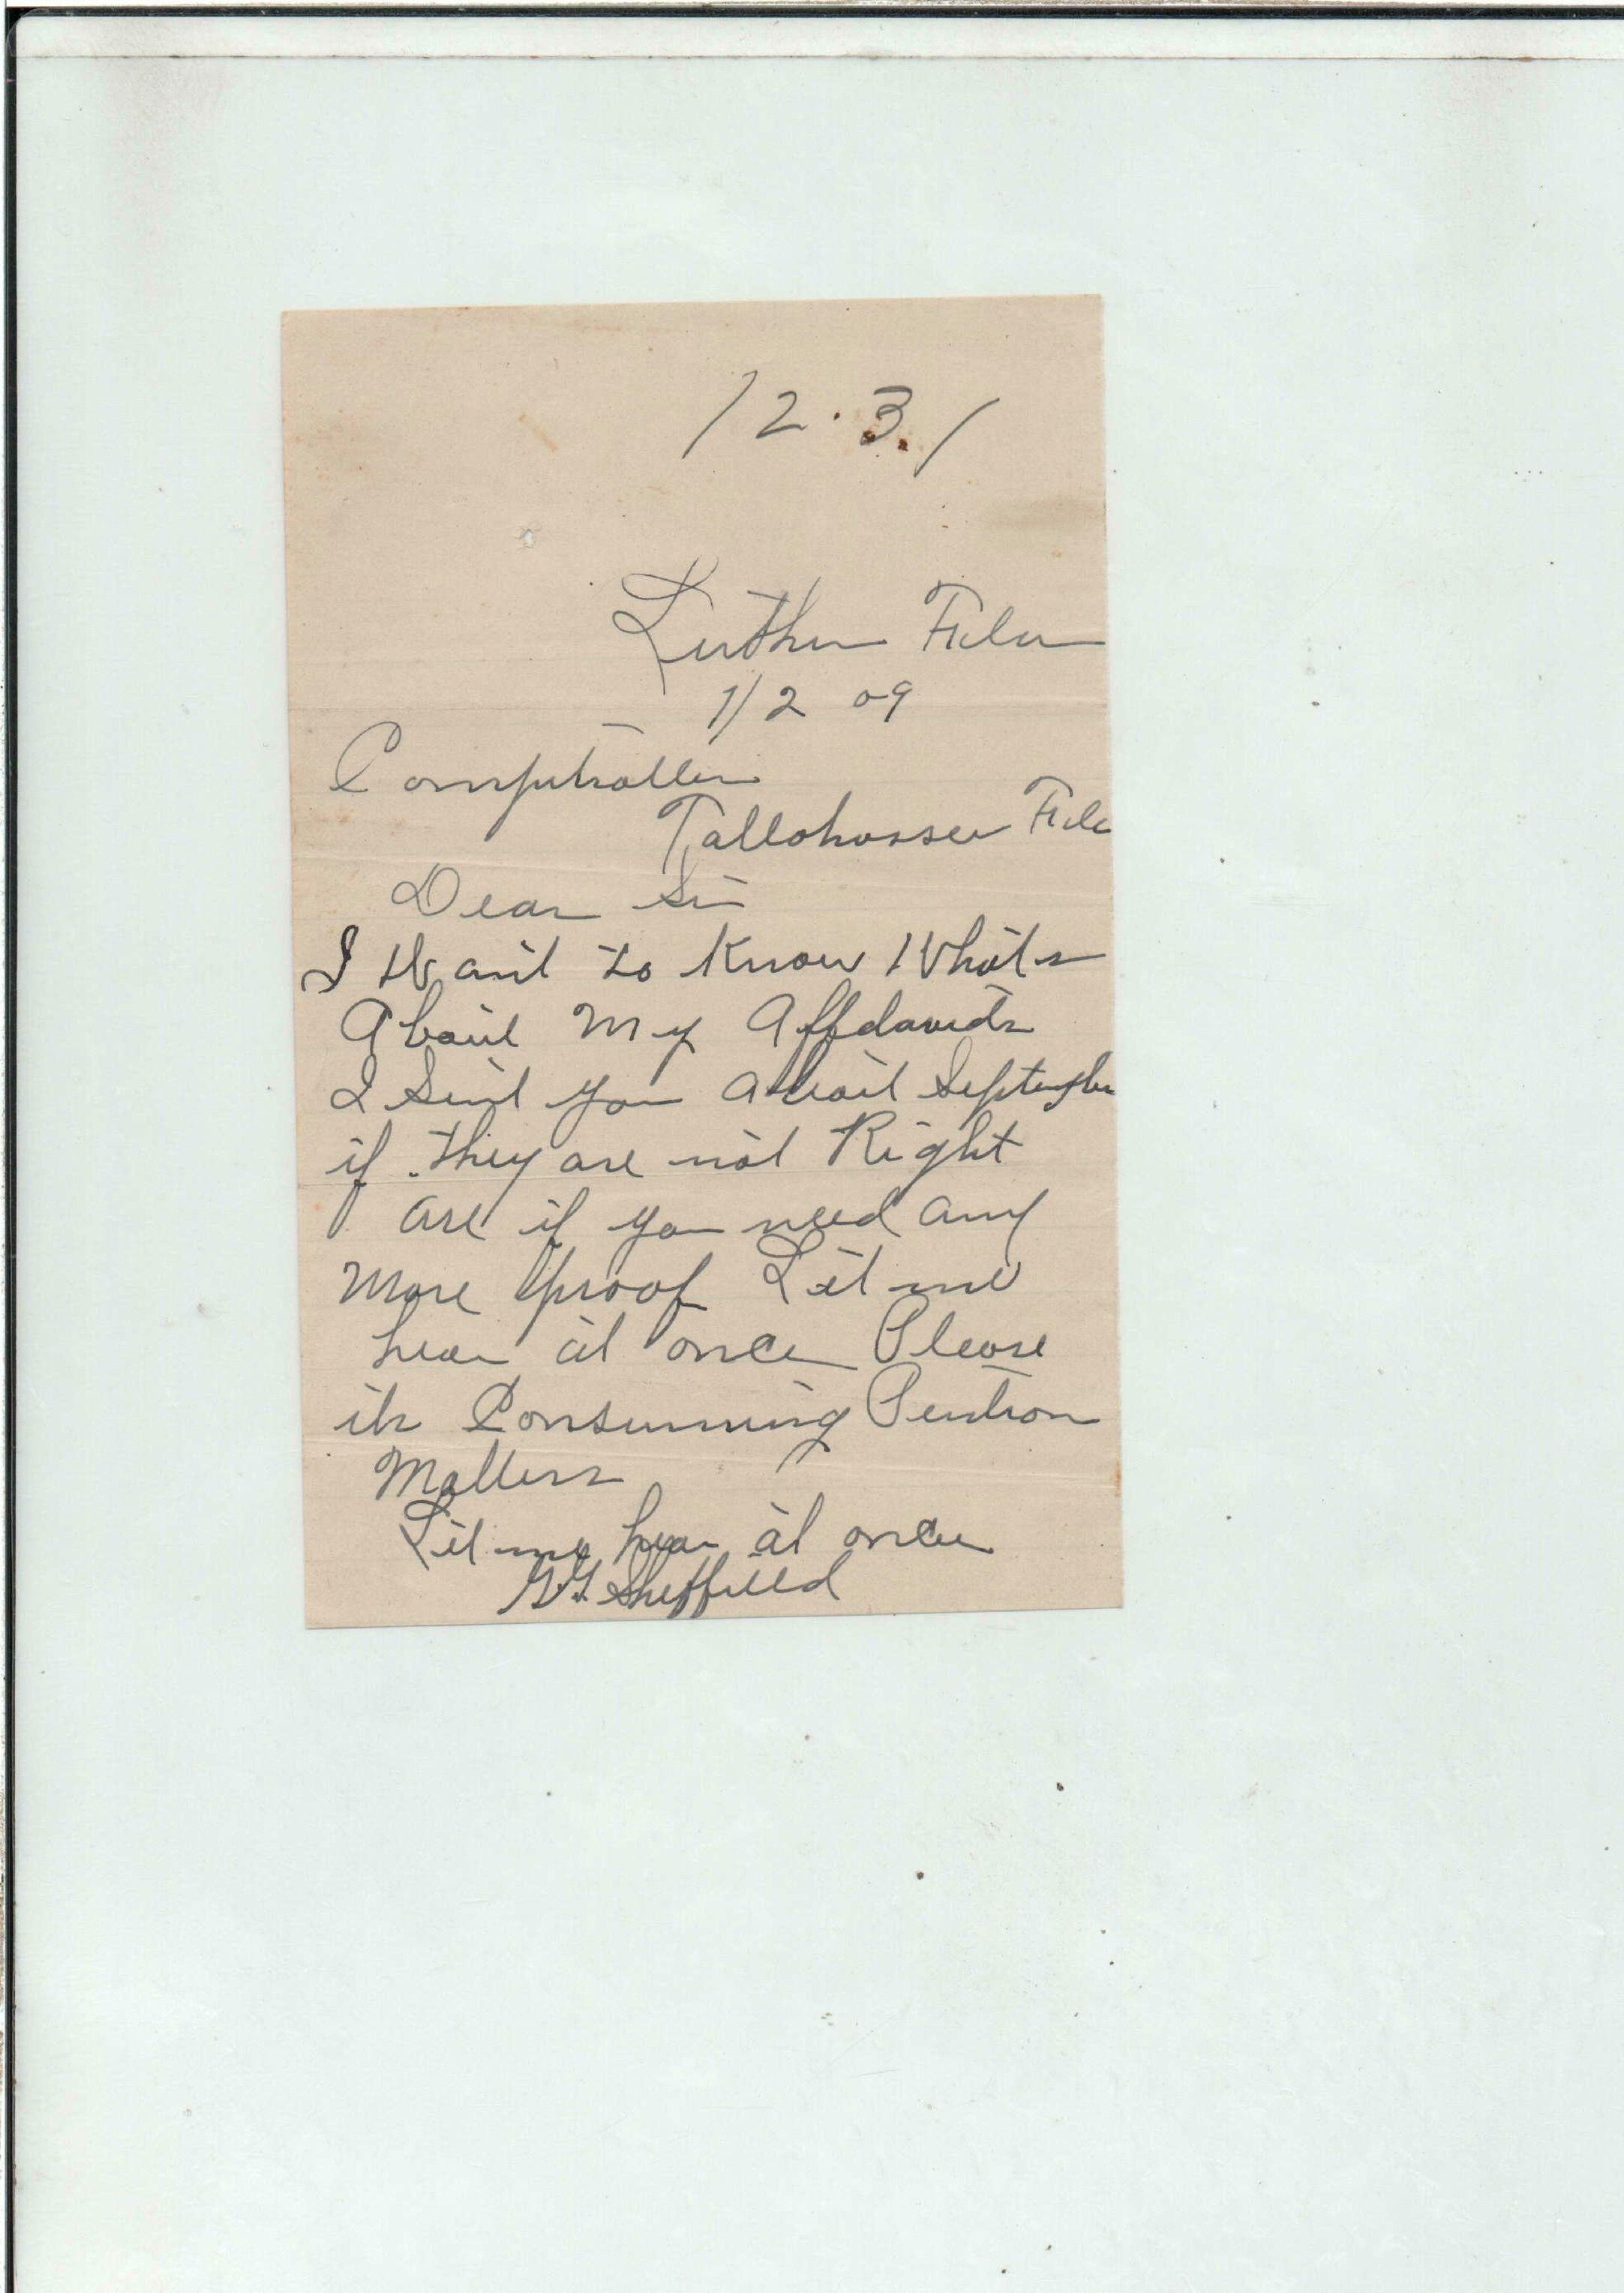 12.31
Luther Fila
1/2 09
Comptroller
Tallohassee Fila
Dear Sir
I Want to Know Whats
About My Affdavids
I Sent you about September
if they are not Right
are if you need any
More proof Let me
hear at once Please
its Consurning Pention
Matters
Let me hear at once
Sheffield